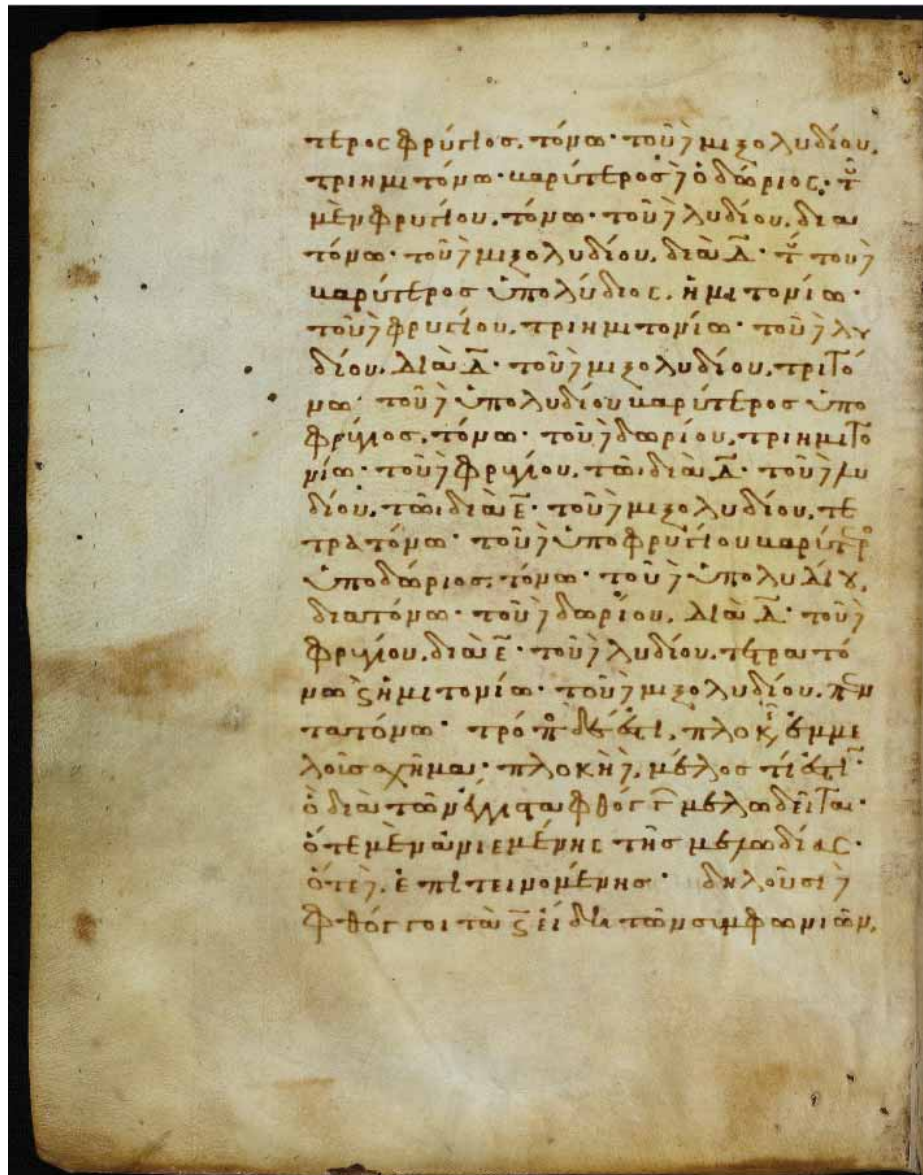 τερος φρύγιος. τόνω· τοῦ δὲ μιξολυδίου.
τριημιτόνω· βαρύτερος δὲ ὁ δώριος· τοῦ
μὲν φρυγίου. τόνω· τοῦ δὲ λυδίου. δια
τόνω· τοῦ δὲ μιξολυδίου. διὰ δ̅· τοῦ
βαρύτερος ὑπολύδιος. ἡμιτονίω·
τοῦ δὲ φρυγίου. τριημιτονίω· τοῦ δὲ λυ
δίου. διὰ δ̅· τοῦ δὲ μιξολυδίου. τριτό
νω· τοῦ δὲ ὑπολυδίου βαρύτερος ὑπο
φρύγιος. τόνω· τοῦ δὲ δωρίου. τριημιτο
νίω· τοῦ δὲ φρυγίου. τῶ διὰ δ̅· τοῦ δὲ λυ
δίου. τῶ διὰ ε̅· τοῦ δὲ μιξολυδίου. τε
τρατόνω· τοῦ δὲ ὑποφρυγίου βαρύτερο
ὑποδώριος. τόνω· τοῦ δὲ ὑπολυδίου.
διατόνω· τοῦ δὲ δωρίου. διὰ δ̅· τοῦ δὲ
φρυγίου. διὰ ε̅· τοῦ δὲ λυδίου. τετρατό
νω ϛ ἡμιτονίω· τοῦ δὲ μιξολυδίου. πεν
τατόνω· τρόπ δέ ἐστι. πλοκῆς ἐμμε
λοῦς σχῆμα· πλοκὴ δὲ. μέλος τί ἐστιν·
ὃ διὰ τῶν φθόγγ μελωδεῖται·
ὁτὲ μὲν ἀνιεμένης τῆς μελωδίας·
ὁτὲ δὲ. ἐπιτεινομένης· δηλοῦσι δὲ
φθόγγοι τὰ ϛ̅ εἴδη τῶν συμφωνιῶν.